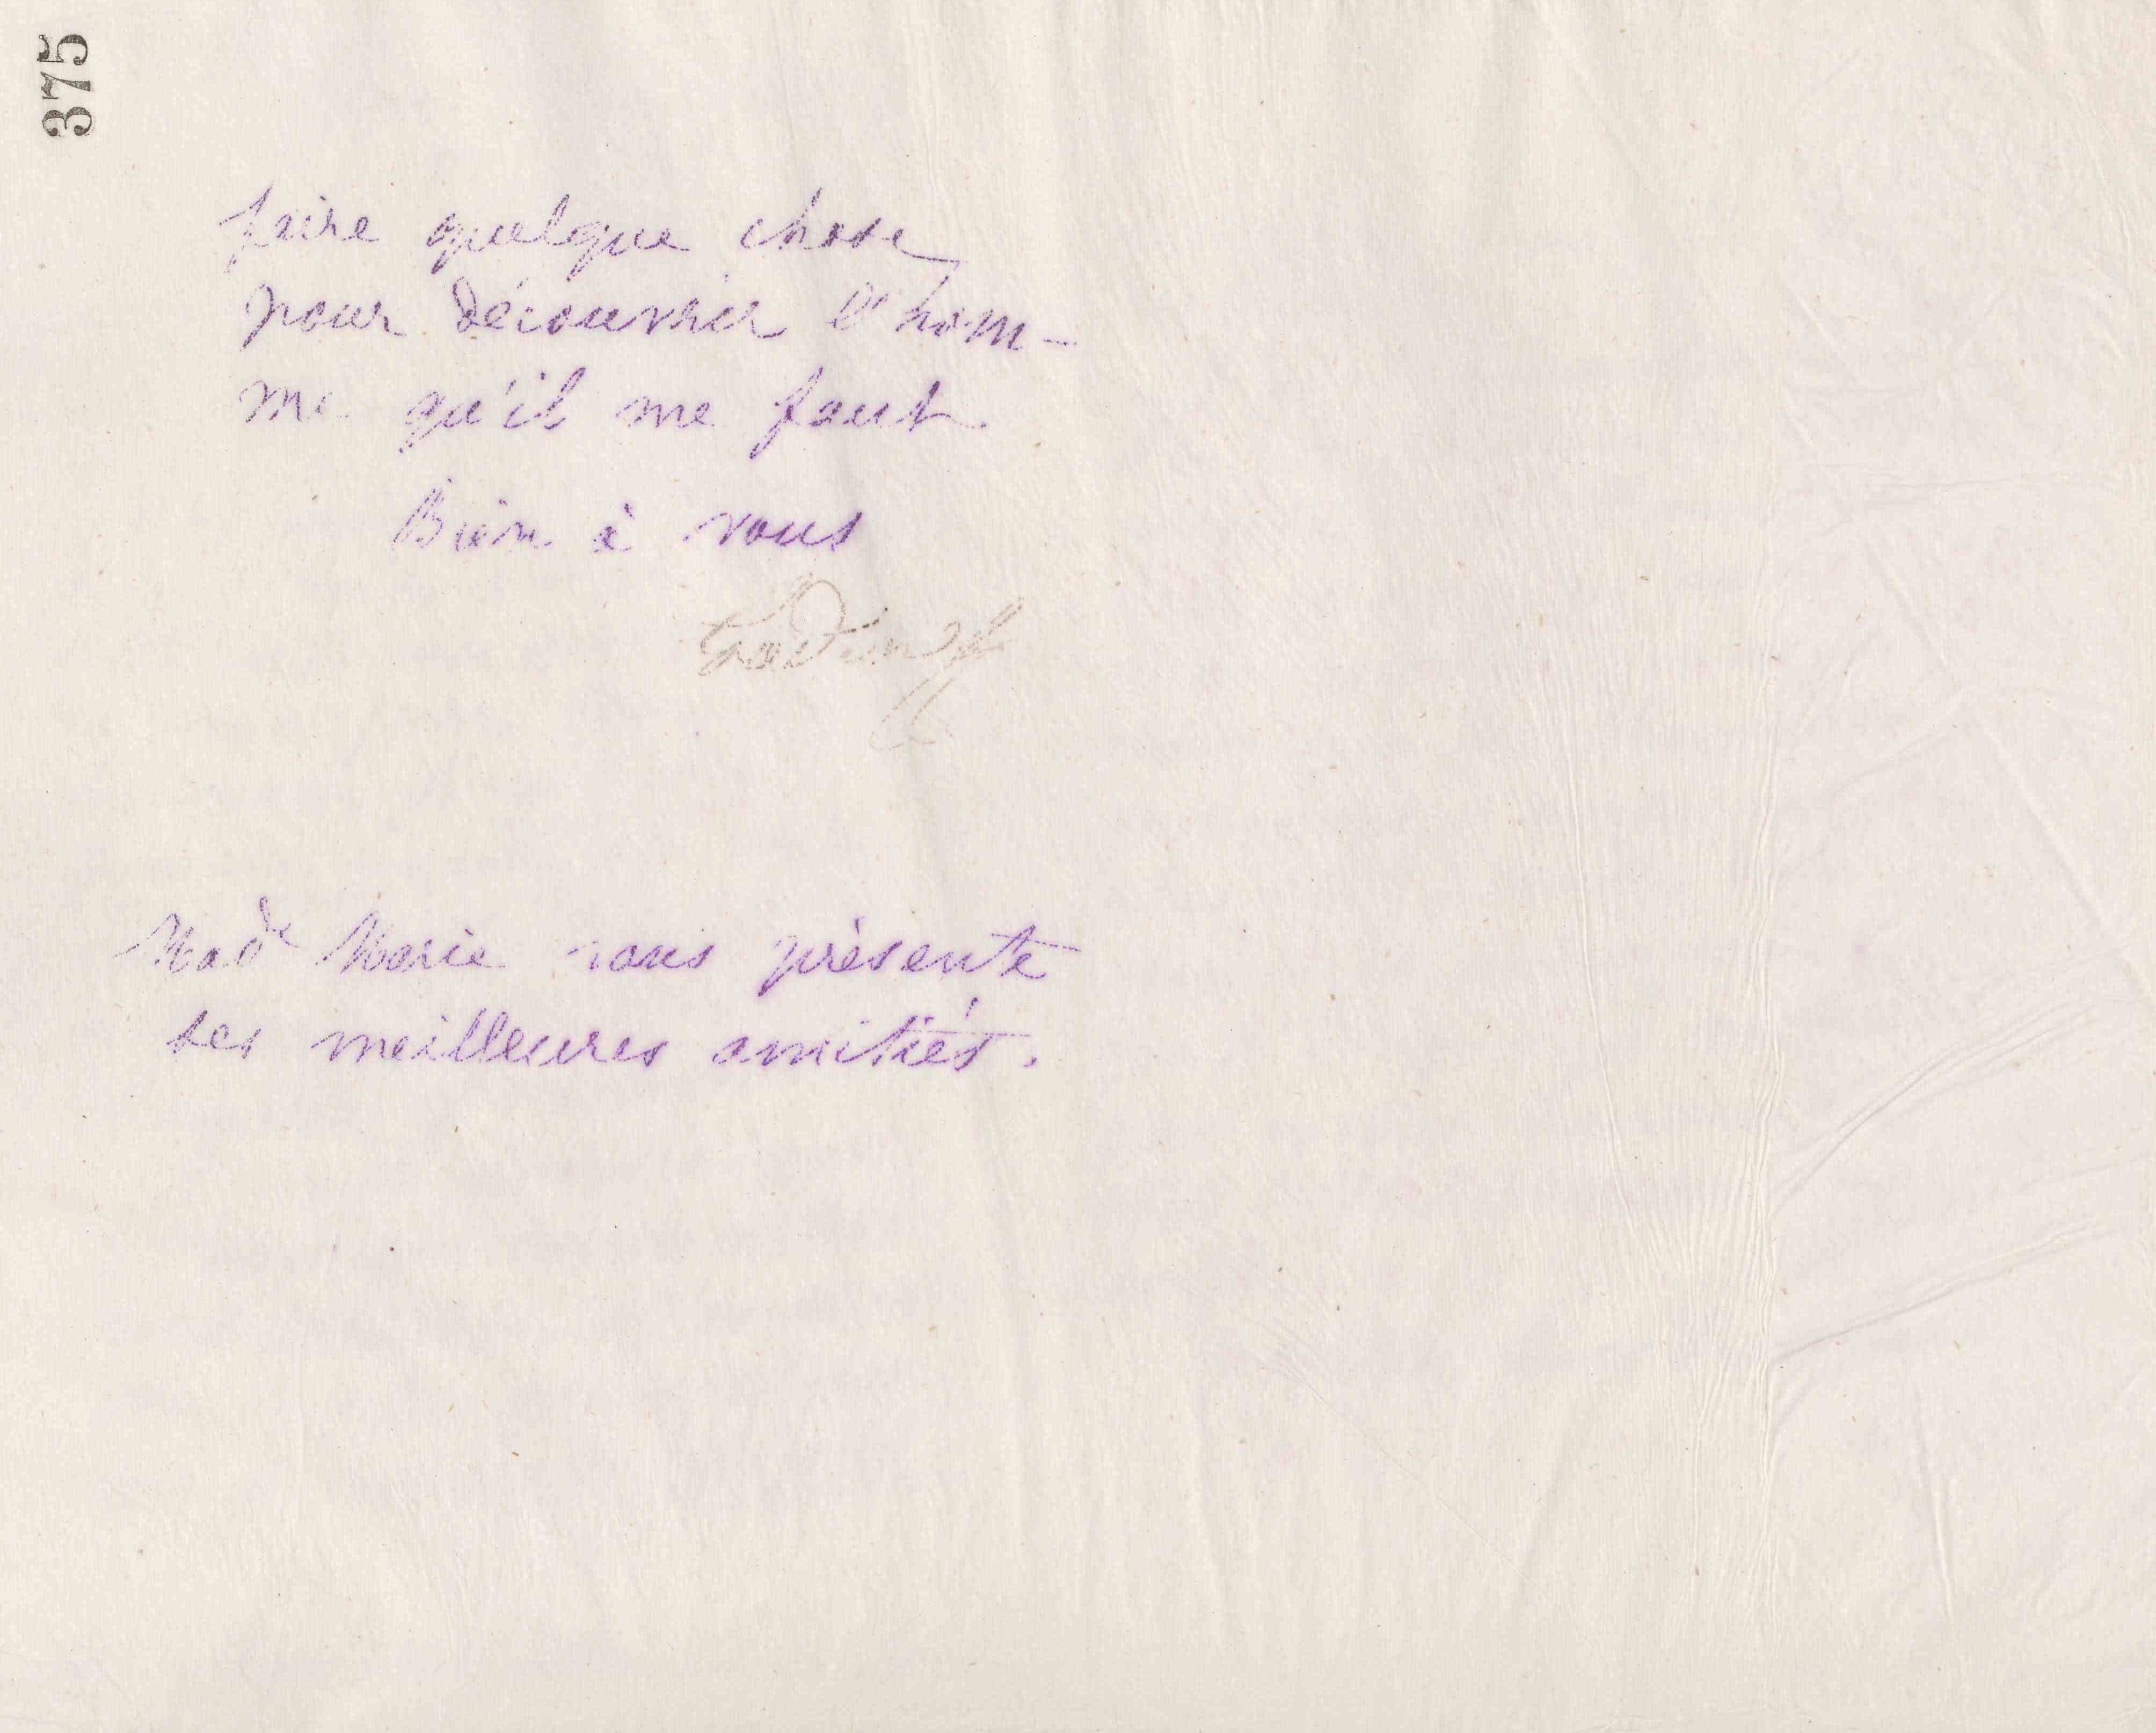 375
faire quelque chose
pour découvrir l'hom-
me qu'il me faut.
Bien à vous
Godin
Made Marie vous présente
ses meilleures amitiés.